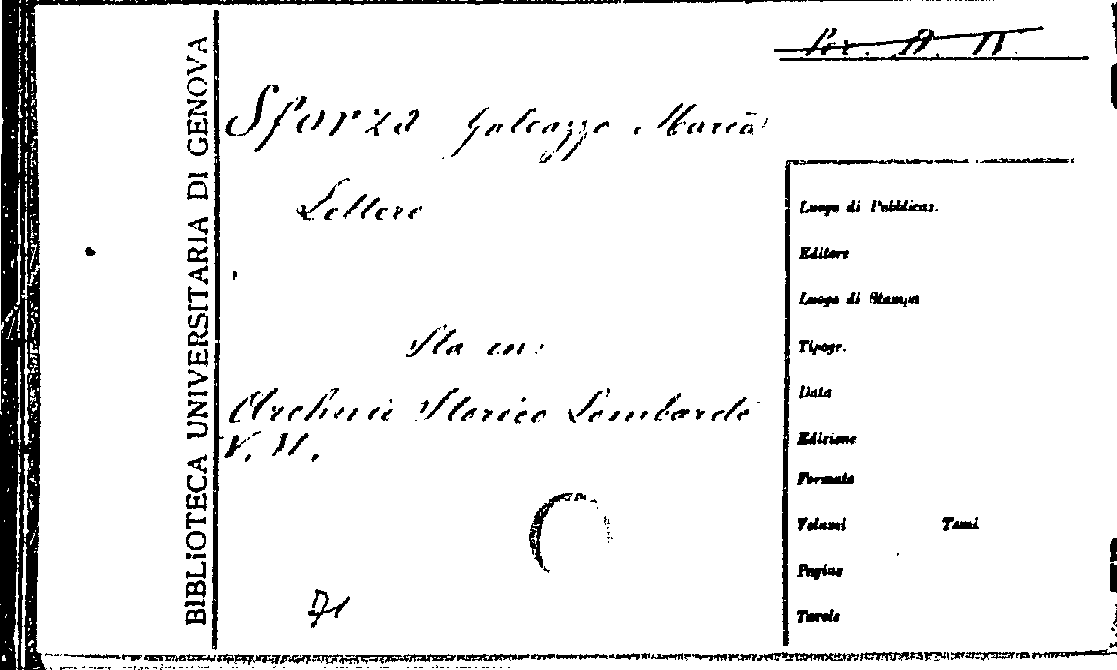 BIBLIOTECA UNIVERSITARIA DI GENOVA
Sforza Galeazzo Maria
Lettere
Sta in:
Archivio Storico Lombardo
V.
71
Luogo di Pubblicaz.
Editore
Luogo di Stampa
Tipogr.
Data
Edizione
Formato
Volumi Tomi
Pagine
Tavole